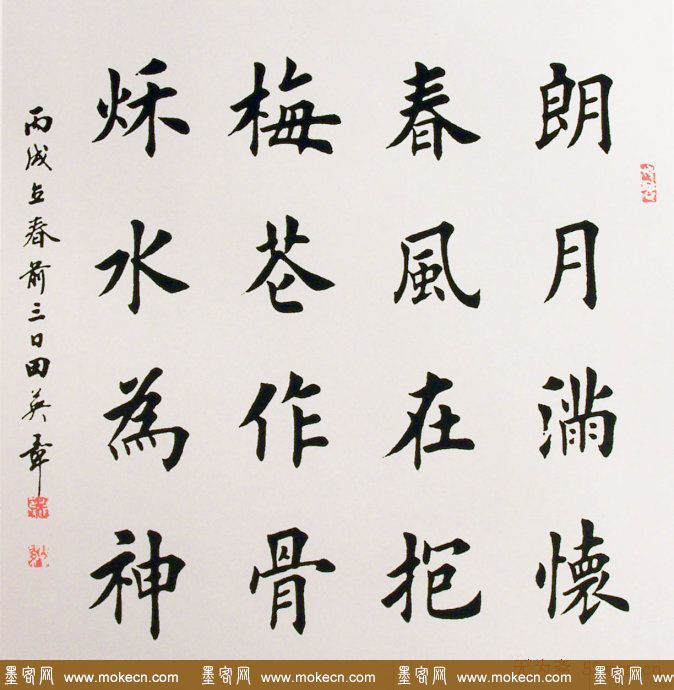 朗月滿懷
春風在抱
梅花作骨
秌水為神
丙戌立春前三日田英章
墨客网 www.mokecn.com 墨客网 www.mokecn.com 墨客网 www.mokecn.com 墨客网 www